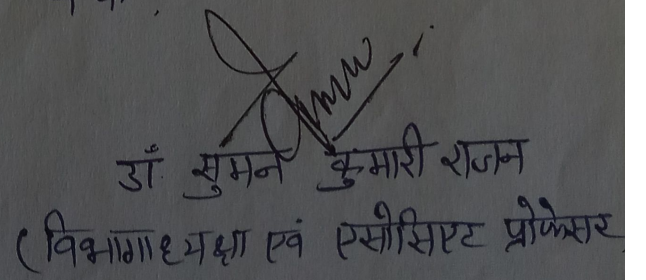 डॉ. सुमन कुमारी राजन
(विभागाध्यक्षा एवं एसोसिएट प्रोफेसर